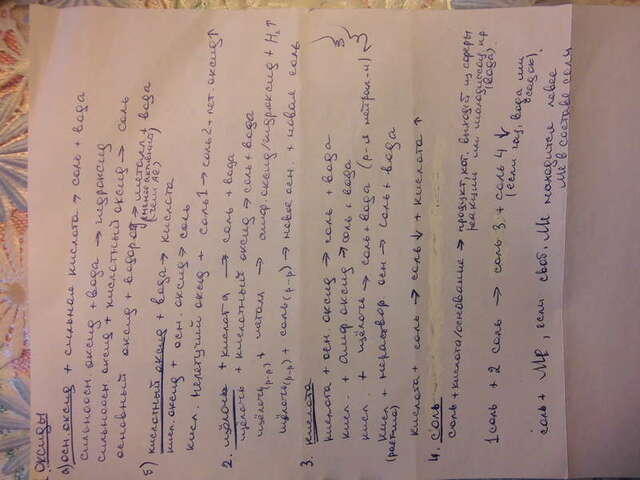 1. Оксиды
а) осн. оксид + сильная кислота → соль + вода
сильноосн оксид + вода → гидроксид
сильноосн оксид + кислотный оксид → соль
основный оксид + водород → металл + вода
(менее активный чем Al)
б) кислотный оксид + вода → кислота
кисл. оксид + осн. оксид → соль
кисл. Нелетучий оксид + соль 1 → соль 2 + лет. оксид ↑
2. щёлочь + кислота → соль + вода
щёлочь + кислотный оксид → соль + вода
щёлочь (р-р) + металл → амф. оксид/гидроксид + H₂↑
щёлочь (р-р) + соль (р-р) → новое осн. + новая соль
3. кислота
кислота + осн. оксид → соль + вода
кисл. + амф оксид → соль + вода
кисл. + щёлочь → соль + вода (р-я нейтрал-и)
кисл + нераствор осн → соль + вода
кислота + соль → соль ↓ + кислота ↑
4. соль
соль + кислота/основание → продукт, кот. выходит из сферы
реакции
(вода)
1 соль + 2 соль → соль 3 + соль 4 ↓
(если газ, вода или
осадок).
соль + Ме, если своб. Ме находится левее
Ме в составе соли